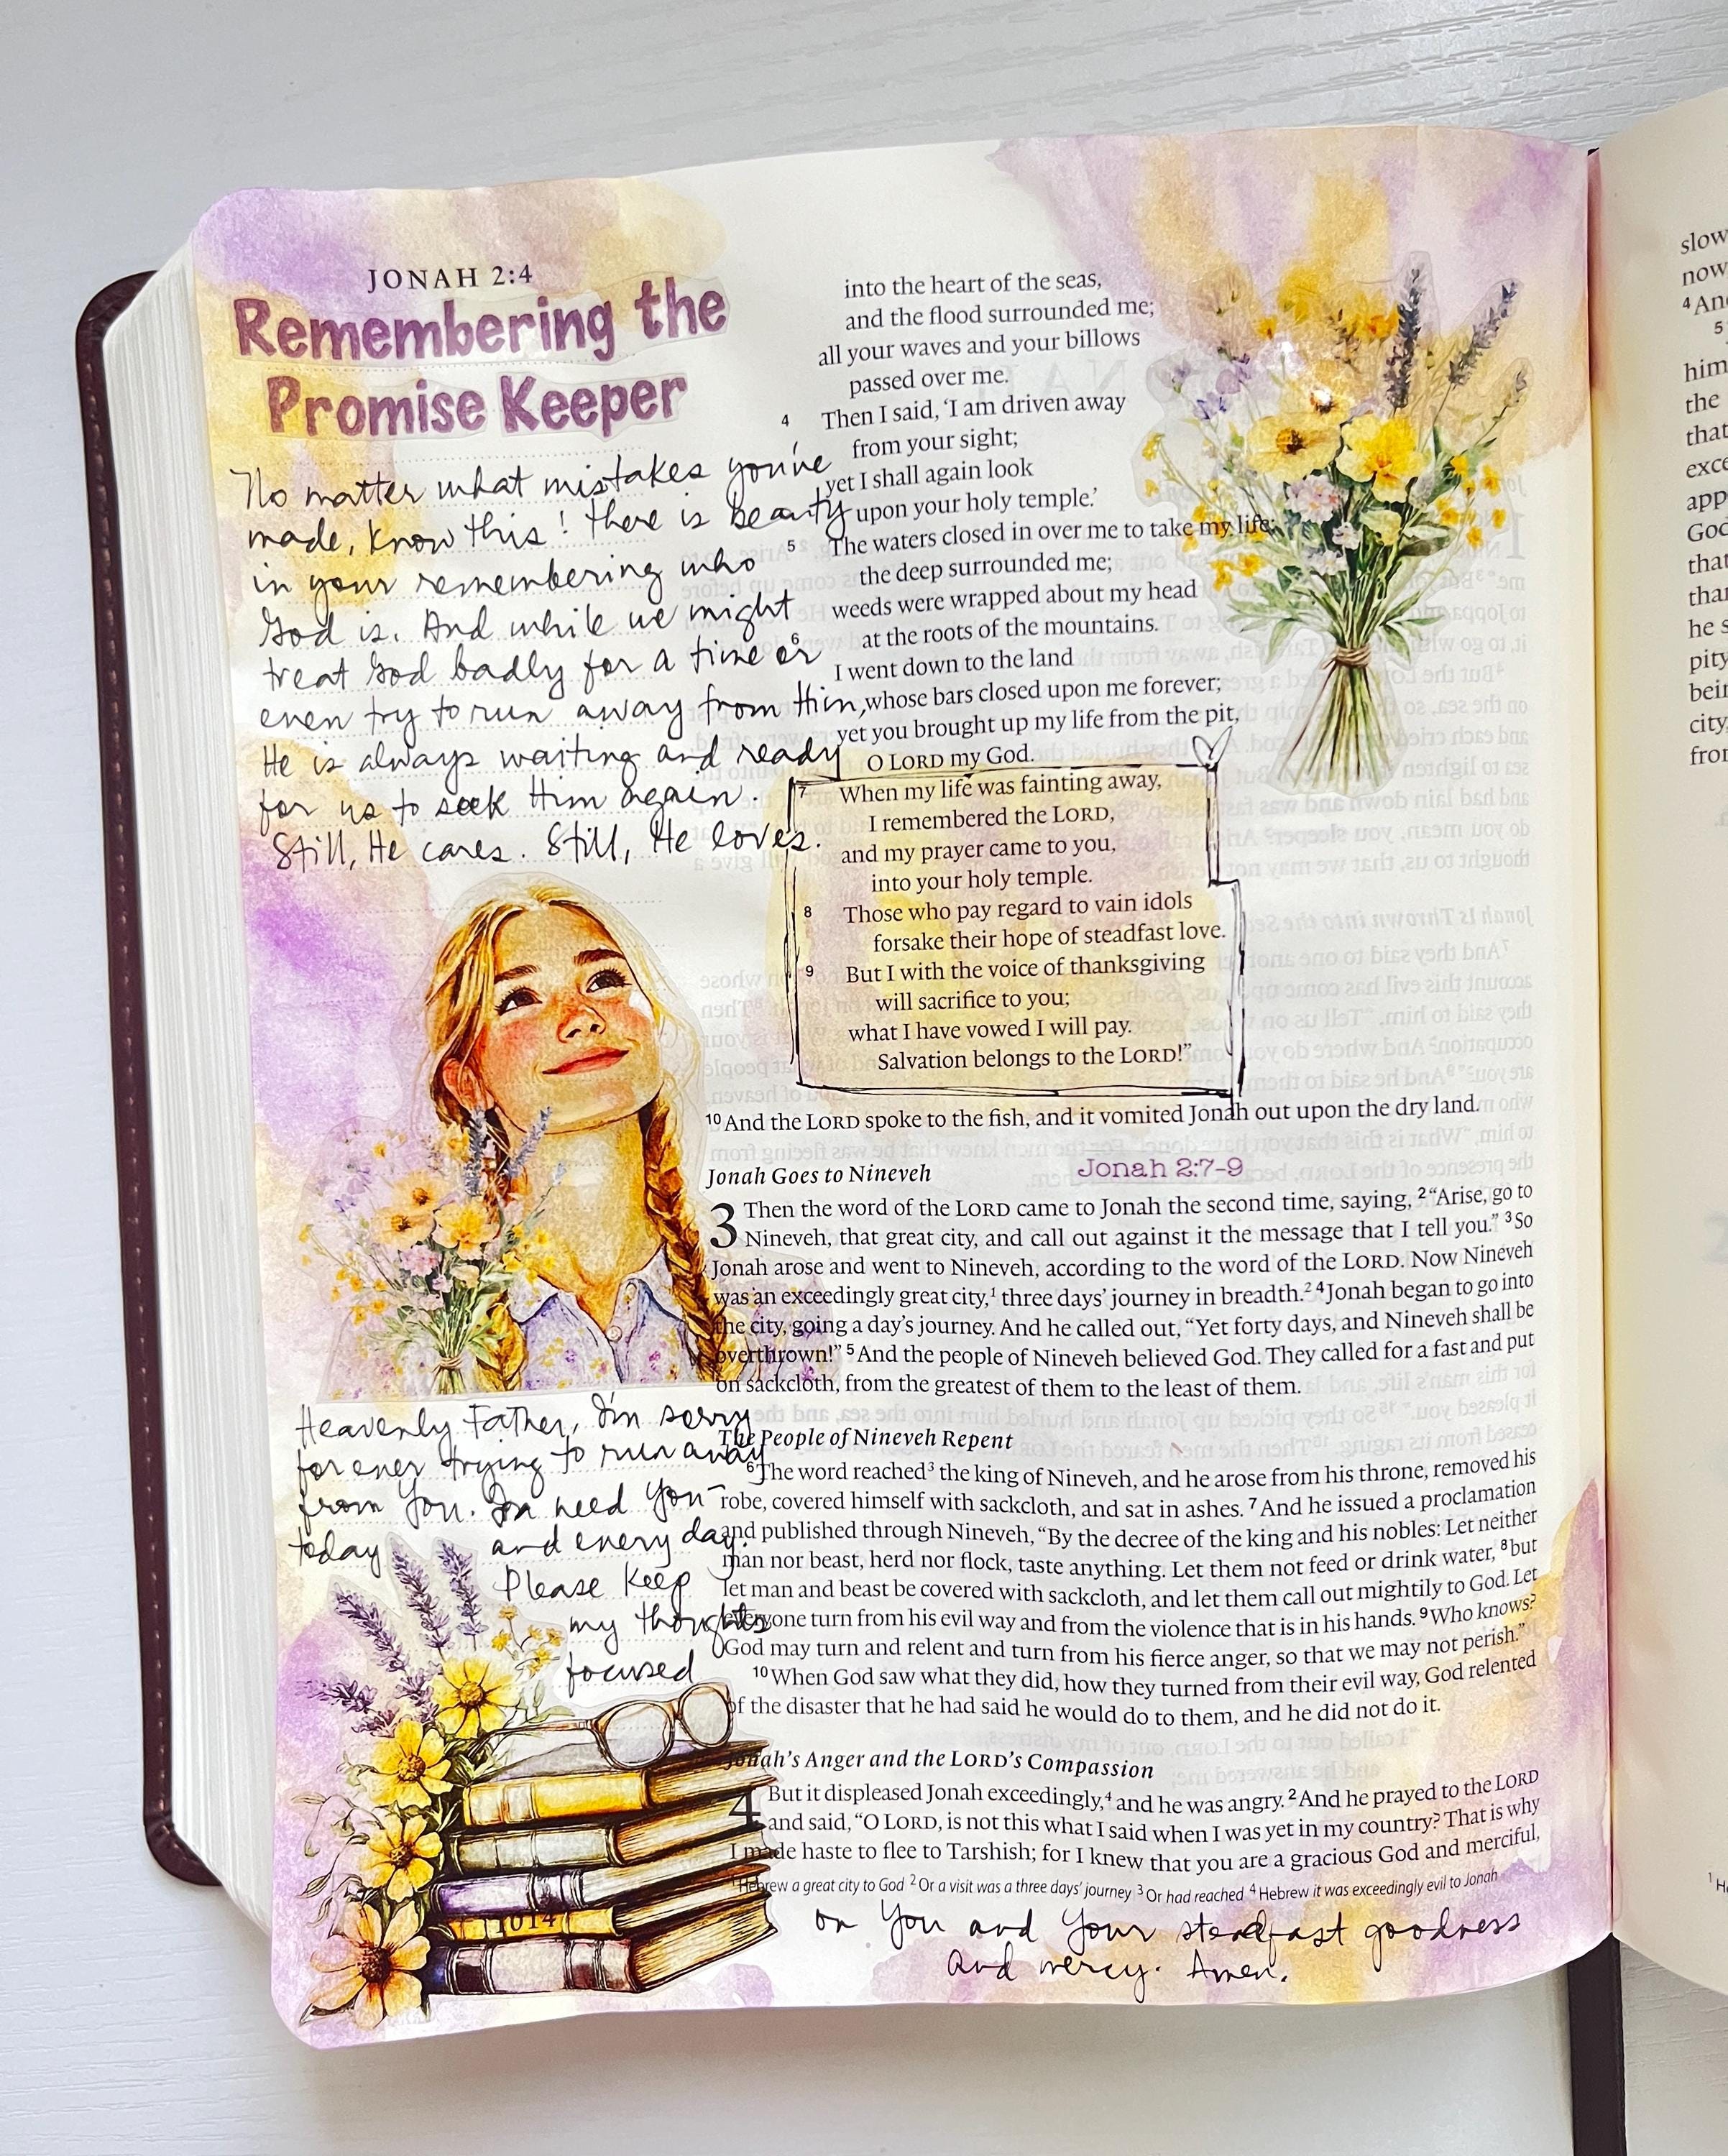 JONAH 2:4
Remembering the
Promise Keeper
No matter what mistakes you've
made, know this! there is beauty
in your remembering who
God is. And while we might
treat God badly for a time or
even try to run away from Him,
He is always waiting and ready
for us to seek Him again.
Still, He cares. Still, He loves.
Heavenly Father, I'm sorry
for ever trying to run away
from You. I need You
today and every day.
Please keep
my thoughts
focused
on You and Your steadfast goodness
and mercy. Amen.
into the heart of the seas,
and the flood surrounded me;
all your waves and your billows
passed over me.
4 Then I said, ‘I am driven away
from your sight;
yet I shall again look
upon your holy temple.’
5 The waters closed in over me to take my life;
the deep surrounded me;
weeds were wrapped about my head
6 at the roots of the mountains.
I went down to the land
whose bars closed upon me forever;
yet you brought up my life from the pit,
O LORD my God.
7 When my life was fainting away,
I remembered the LORD,
and my prayer came to you,
into your holy temple.
8 Those who pay regard to vain idols
forsake their hope of steadfast love.
9 But I with the voice of thanksgiving
will sacrifice to you;
what I have vowed I will pay.
Salvation belongs to the LORD!”
10 And the LORD spoke to the fish, and it vomited Jonah out upon the dry land.
Jonah Goes to Nineveh
Jonah 2:7-9
3 Then the word of the LORD came to Jonah the second time, saying, 2 “Arise, go to
Nineveh, that great city, and call out against it the message that I tell you.” 3 So
Jonah arose and went to Nineveh, according to the word of the LORD. Now Nineveh
was an exceedingly great city,1 three days’ journey in breadth.2 4 Jonah began to go into
the city, going a day’s journey. And he called out, “Yet forty days, and Nineveh shall be
overthrown!” 5 And the people of Nineveh believed God. They called for a fast and put
on sackcloth, from the greatest of them to the least of them.
The People of Nineveh Repent
6 The word reached3 the king of Nineveh, and he arose from his throne, removed his
robe, covered himself with sackcloth, and sat in ashes. 7 And he issued a proclamation
and published through Nineveh, “By the decree of the king and his nobles: Let neither
man nor beast, herd nor flock, taste anything. Let them not feed or drink water, 8 but
let man and beast be covered with sackcloth, and let them call out mightily to God. Let
everyone turn from his evil way and from the violence that is in his hands. 9 Who knows?
God may turn and relent and turn from his fierce anger, so that we may not perish.”
10 When God saw what they did, how they turned from their evil way, God relented
of the disaster that he had said he would do to them, and he did not do it.
Jonah’s Anger and the LORD’s Compassion
4 But it displeased Jonah exceedingly,4 and he was angry. 2 And he prayed to the LORD
and said, “O LORD, is not this what I said when I was yet in my country? That is why
I made haste to flee to Tarshish; for I knew that you are a gracious God and merciful,
1 Hebrew a great city to God 2 Or a visit was a three days’ journey 3 Or had reached 4 Hebrew it was exceedingly evil to Jonah
1014
slow
now
4 And
5
him
the
that
exce
app
God
that
than
he s
pity
bein
city,
from